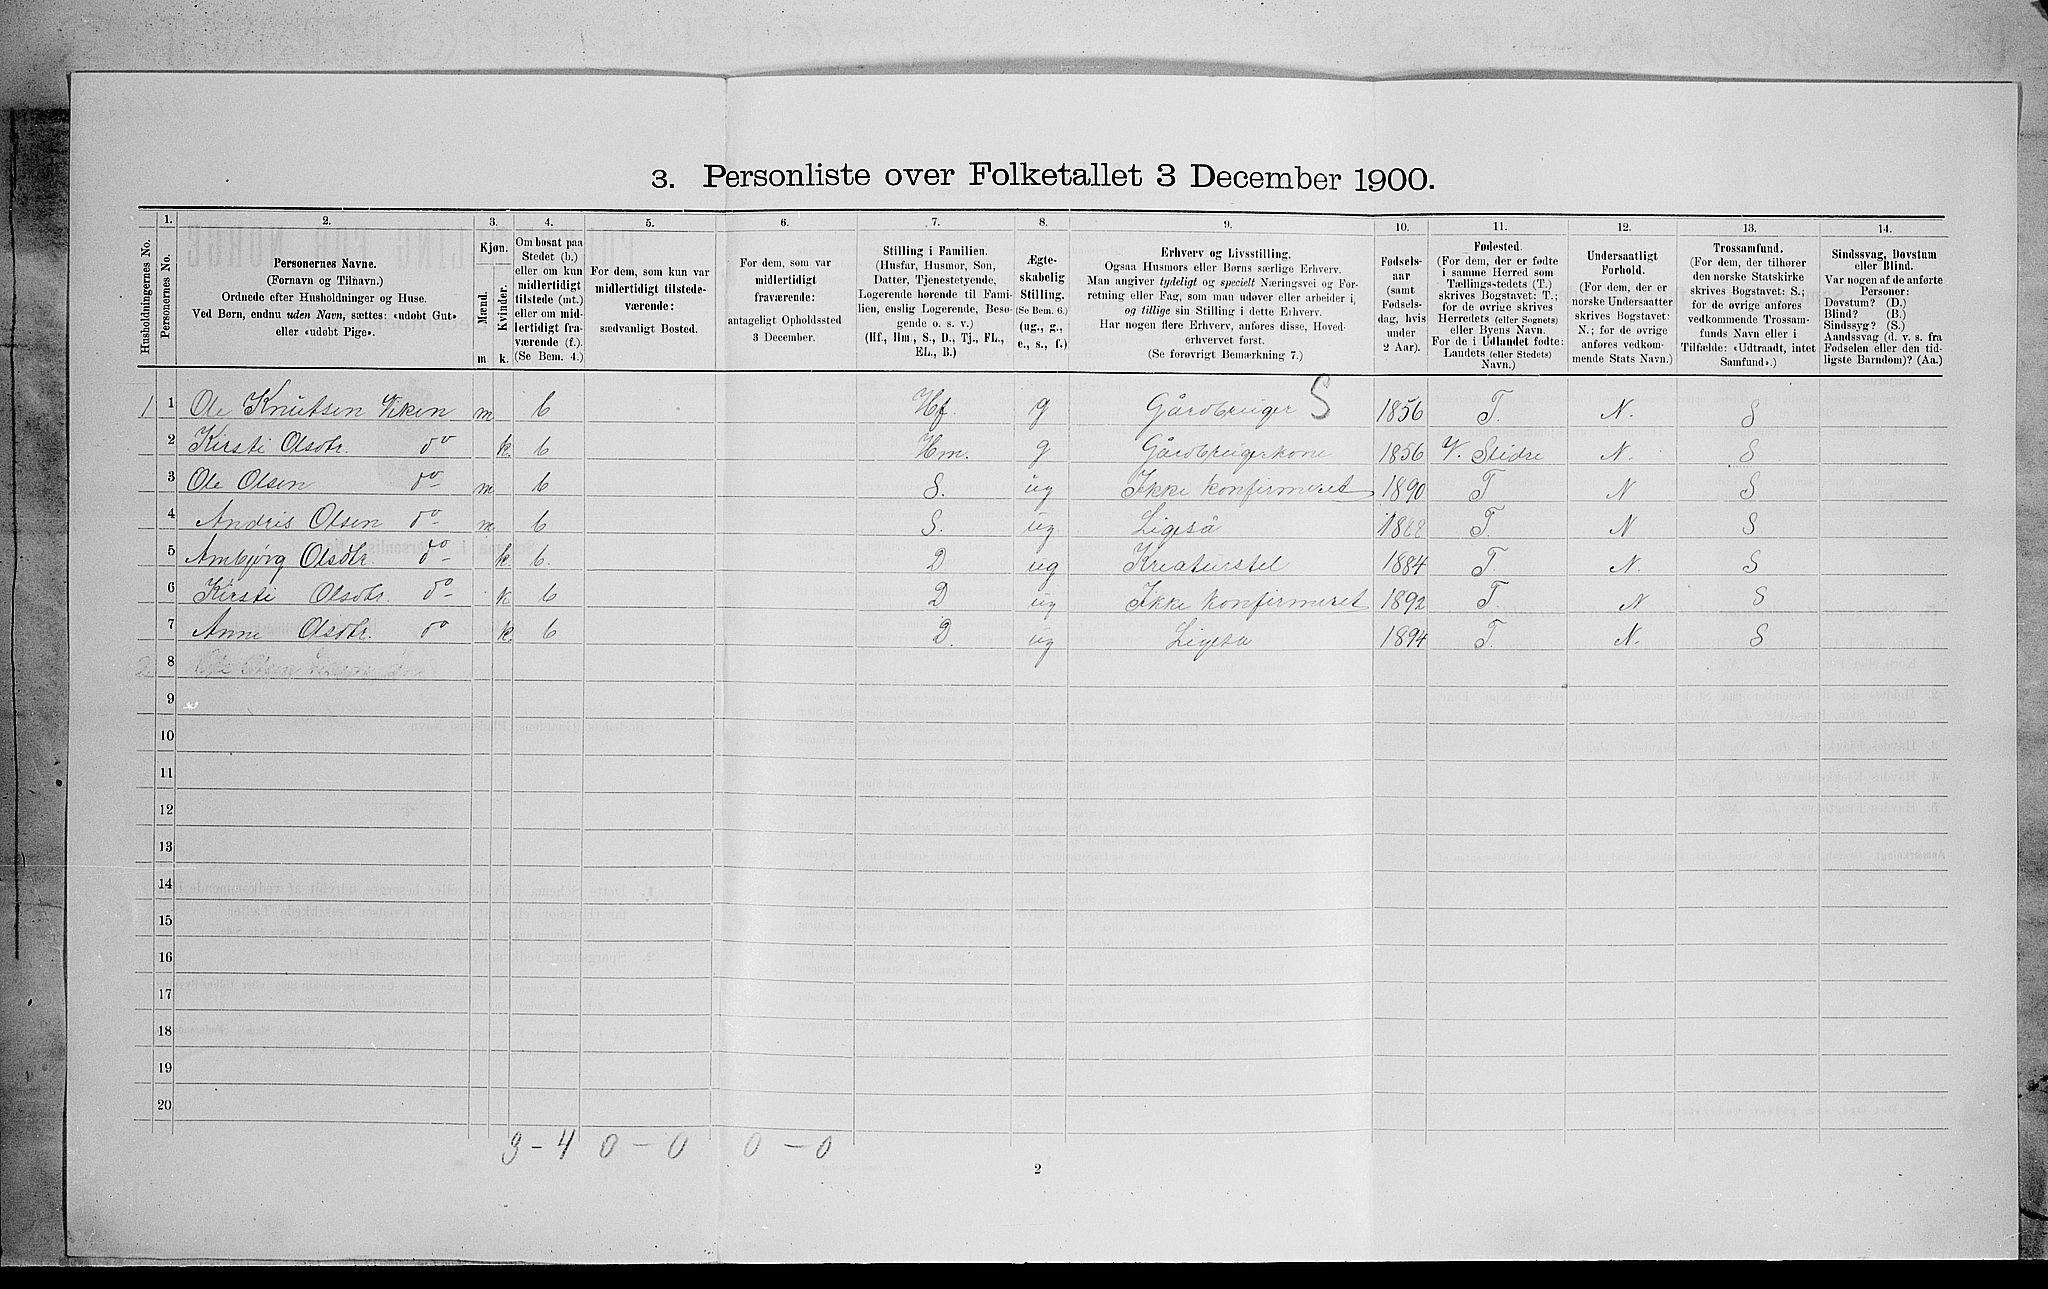 3. Personliste over Folketallet 3 December 1900.
1. 2. 3. 4. 5. 6. 7. 8. 9. 10. 11. 12. 13. 14.
Husholdningernes No.
Personernes No.
Personernes Navne.
(Fornavn og Tilnavn.)
Ordnede efter Husholdninger og Huse.
Ved Børn, endnu uden Navn, sættes: «udøbt Gut»
eller «udøbt Pige».
Kjøn.
Mænd.
Kvinder.
m k.
Om bosat paa
Stedet (b.)
eller om kun
midlertidigt
tilstede (mt.)
eller om mid-
lertidigt fra-
værende (f.)
(Se Bem. 4.)
For dem, som kun var
midlertidigt tilstede-
værende:
sædvanligt Bosted.
For dem, som var
midlertidigt
fraværende:
antageligt Opholdssted
3 December.
Stilling i Familien.
(Husfar, Husmor, Søn,
Datter, Tjenestetyende,
Logerende hørende til Fami-
lien, enslig Logerende, Besø-
gende o. s. v.)
(Hf., Hm., S., D., Tj., FL.,
EL., B.)
Ægte-
skabelig
Stilling.
(Se Bem. 6.)
(ug., g.,
e., s., f.)
Erhverv og Livsstilling.
Ogsaa Husmors eller Børns særlige Erhverv.
Man angiver tydeligt og specielt Næringsvei og For-
retning eller Fag, som man udøver eller arbeider i,
og tillige sin Stilling i dette Erhverv.
Har nogen flere Erhverv, anføres disse, Hoved-
erhvervet først.
(Se forøvrigt Bemærkning 7.)
Fødsels-
aar
(samt
Fødsels-
dag, hvis
under
2 Aar).
Fødested.
(For dem, der er fødte
i samme Herred som
Tællings-stedets (T.)
skrives Bogstavet: T.;
for de øvrige skrives
Herredets (eller Sognets)
eller Byens Navn.
For de i Udlandet fødte:
Landets (eller Stedets)
Navn.)
Undersaatligt
Forhold.
(For dem, der er
norske Undersaatter
skrives Bogstavet:
N.; for de øvrige
anføres vedkom-
mende Stats Navn.)
Trossamfund.
(For dem, der tilhører
den norske Statskirke
skrives Bogstavet: S.;
for de øvrige anføres
vedkommende Trossam-
funds Navn eller i
Tilfælde: «Udtraadt, intet
Samfund».)
Sindssvag, Døvstum
eller Blind.
Var nogen af de anførte
Personer:
Døvstum? (D.)
Blind? (B.)
Sindssyg? (S.)
Aandssvag (d. v. s. fra
Fødselen eller den tid-
ligste Barndom)? (Aa.)
1 1 Ole Knutsen Viken m b Hf. g Gårdbruger S 1856 T. N. S
2 Kirsti Olsdtr. do k. b Hm. g Gårdbrugerkone 1856 V. Slidre N. S
3 Ole Olsen do m b S. ug Ikke konfirmeret 1890 T N S
4 Andris Olsen do m b S. ug Ligeså 1888 T. N S
5 Ambjørg Olsdtr. do k. b. D ug Kreaturstel 1884 T. N. S
6 Kirsti Olsdtr. do k b D ug Ikke konfirmeret 1892 T. N S
7 Anne Olsdtr. do k. b D. ug Ligeså 1894 T. N. S
8
9
10
11
12
13
14
15
16
17
18
19
20
3 - 4 0 - 0 0 - 0
2